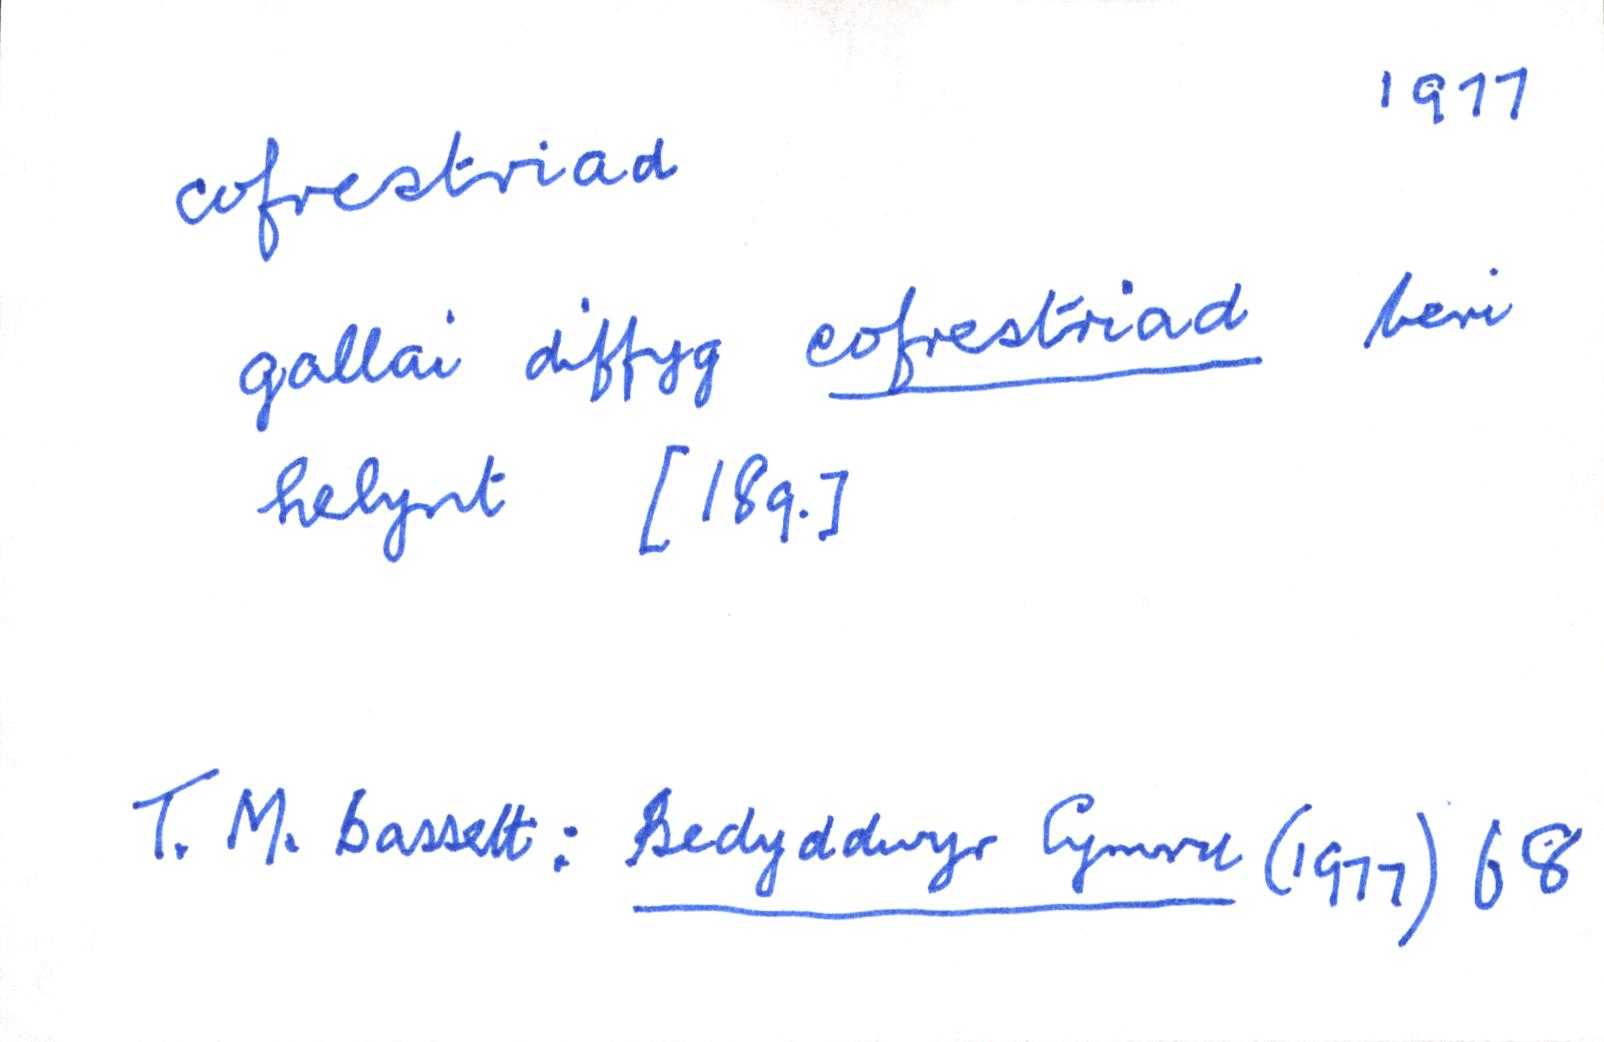 1977
cofrestriad
gallai diffyg cofrestriad beri
helynt [18g.]
T. M. Bassett: Bedyddwyr Cymru (1977) 68